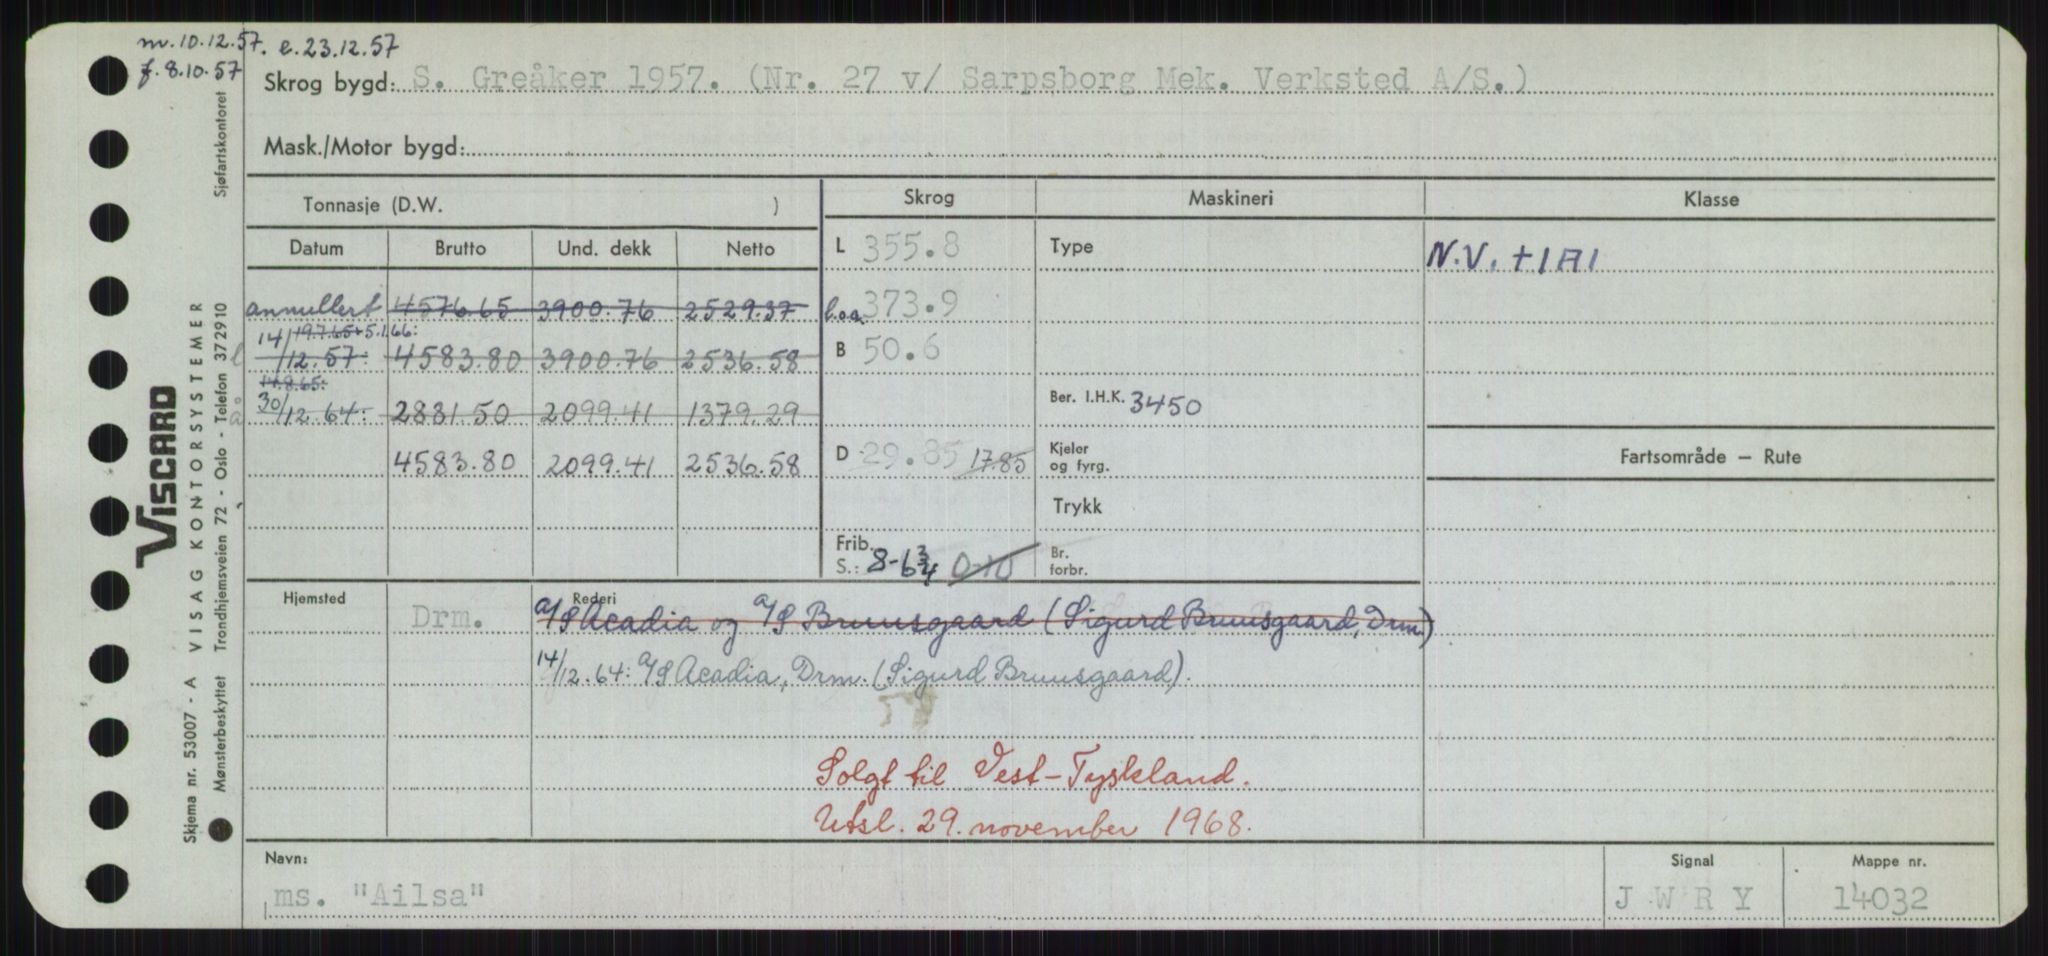 m. 10.12.57. e. 23.12.57
f. 8.10.57
Skrog bygd: S. Greåker 1957. (Nr. 27 v/ Sarpsborg Mek. Verksted A/S.)
Mask./Motor bygd:
Tonnasje (D.W. )
Skrog
Maskineri
Klasse
Datum Brutto Und. dekk Netto
L 355.8
Type
N.V. +1A1
annullert 4576.65 3900.76 2529.37
l.o.a. 373.9
19.7.65+5.1.66:
14/12.57: 4583.80 3900.76 2536.58
B 50.6
14.8.65:
30/12.64: 2881.50 2099.41 1379.29
Ber. I.H.K. 3450
4583.80 2099.41 2536.58
D 29.85 17.85
Kjeler og fyrg.
Fartsområde — Rute
Trykk
Frib. S.: 8-6¾ 0-10
Br. forbr.
Hjemsted
Drm.
Rederi
A/S Acadia og A/S Bruusgaard (Sigurd Bruusgaard, Drm.)
14/12.64: A/S Acadia, Drm. (Sigurd Bruusgaard).
Solgt til Vest-Tyskland.
Utsl. 29. november 1968.
Navn:
ms. "Ailsa"
Signal
J W R Y
Mappe nr.
14032
VISCARD
Skjema nr. 53007 - A VISAG KONTORSYSTEMER
Mønsterbeskyttet Trondhjemsveien 72 - Oslo - Telefon 372910 Sjøfartskontoret